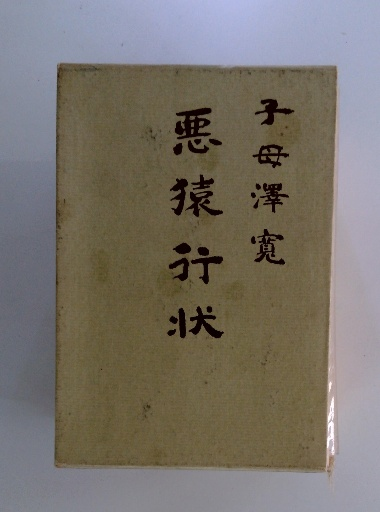 子母澤寛
悪猿行状